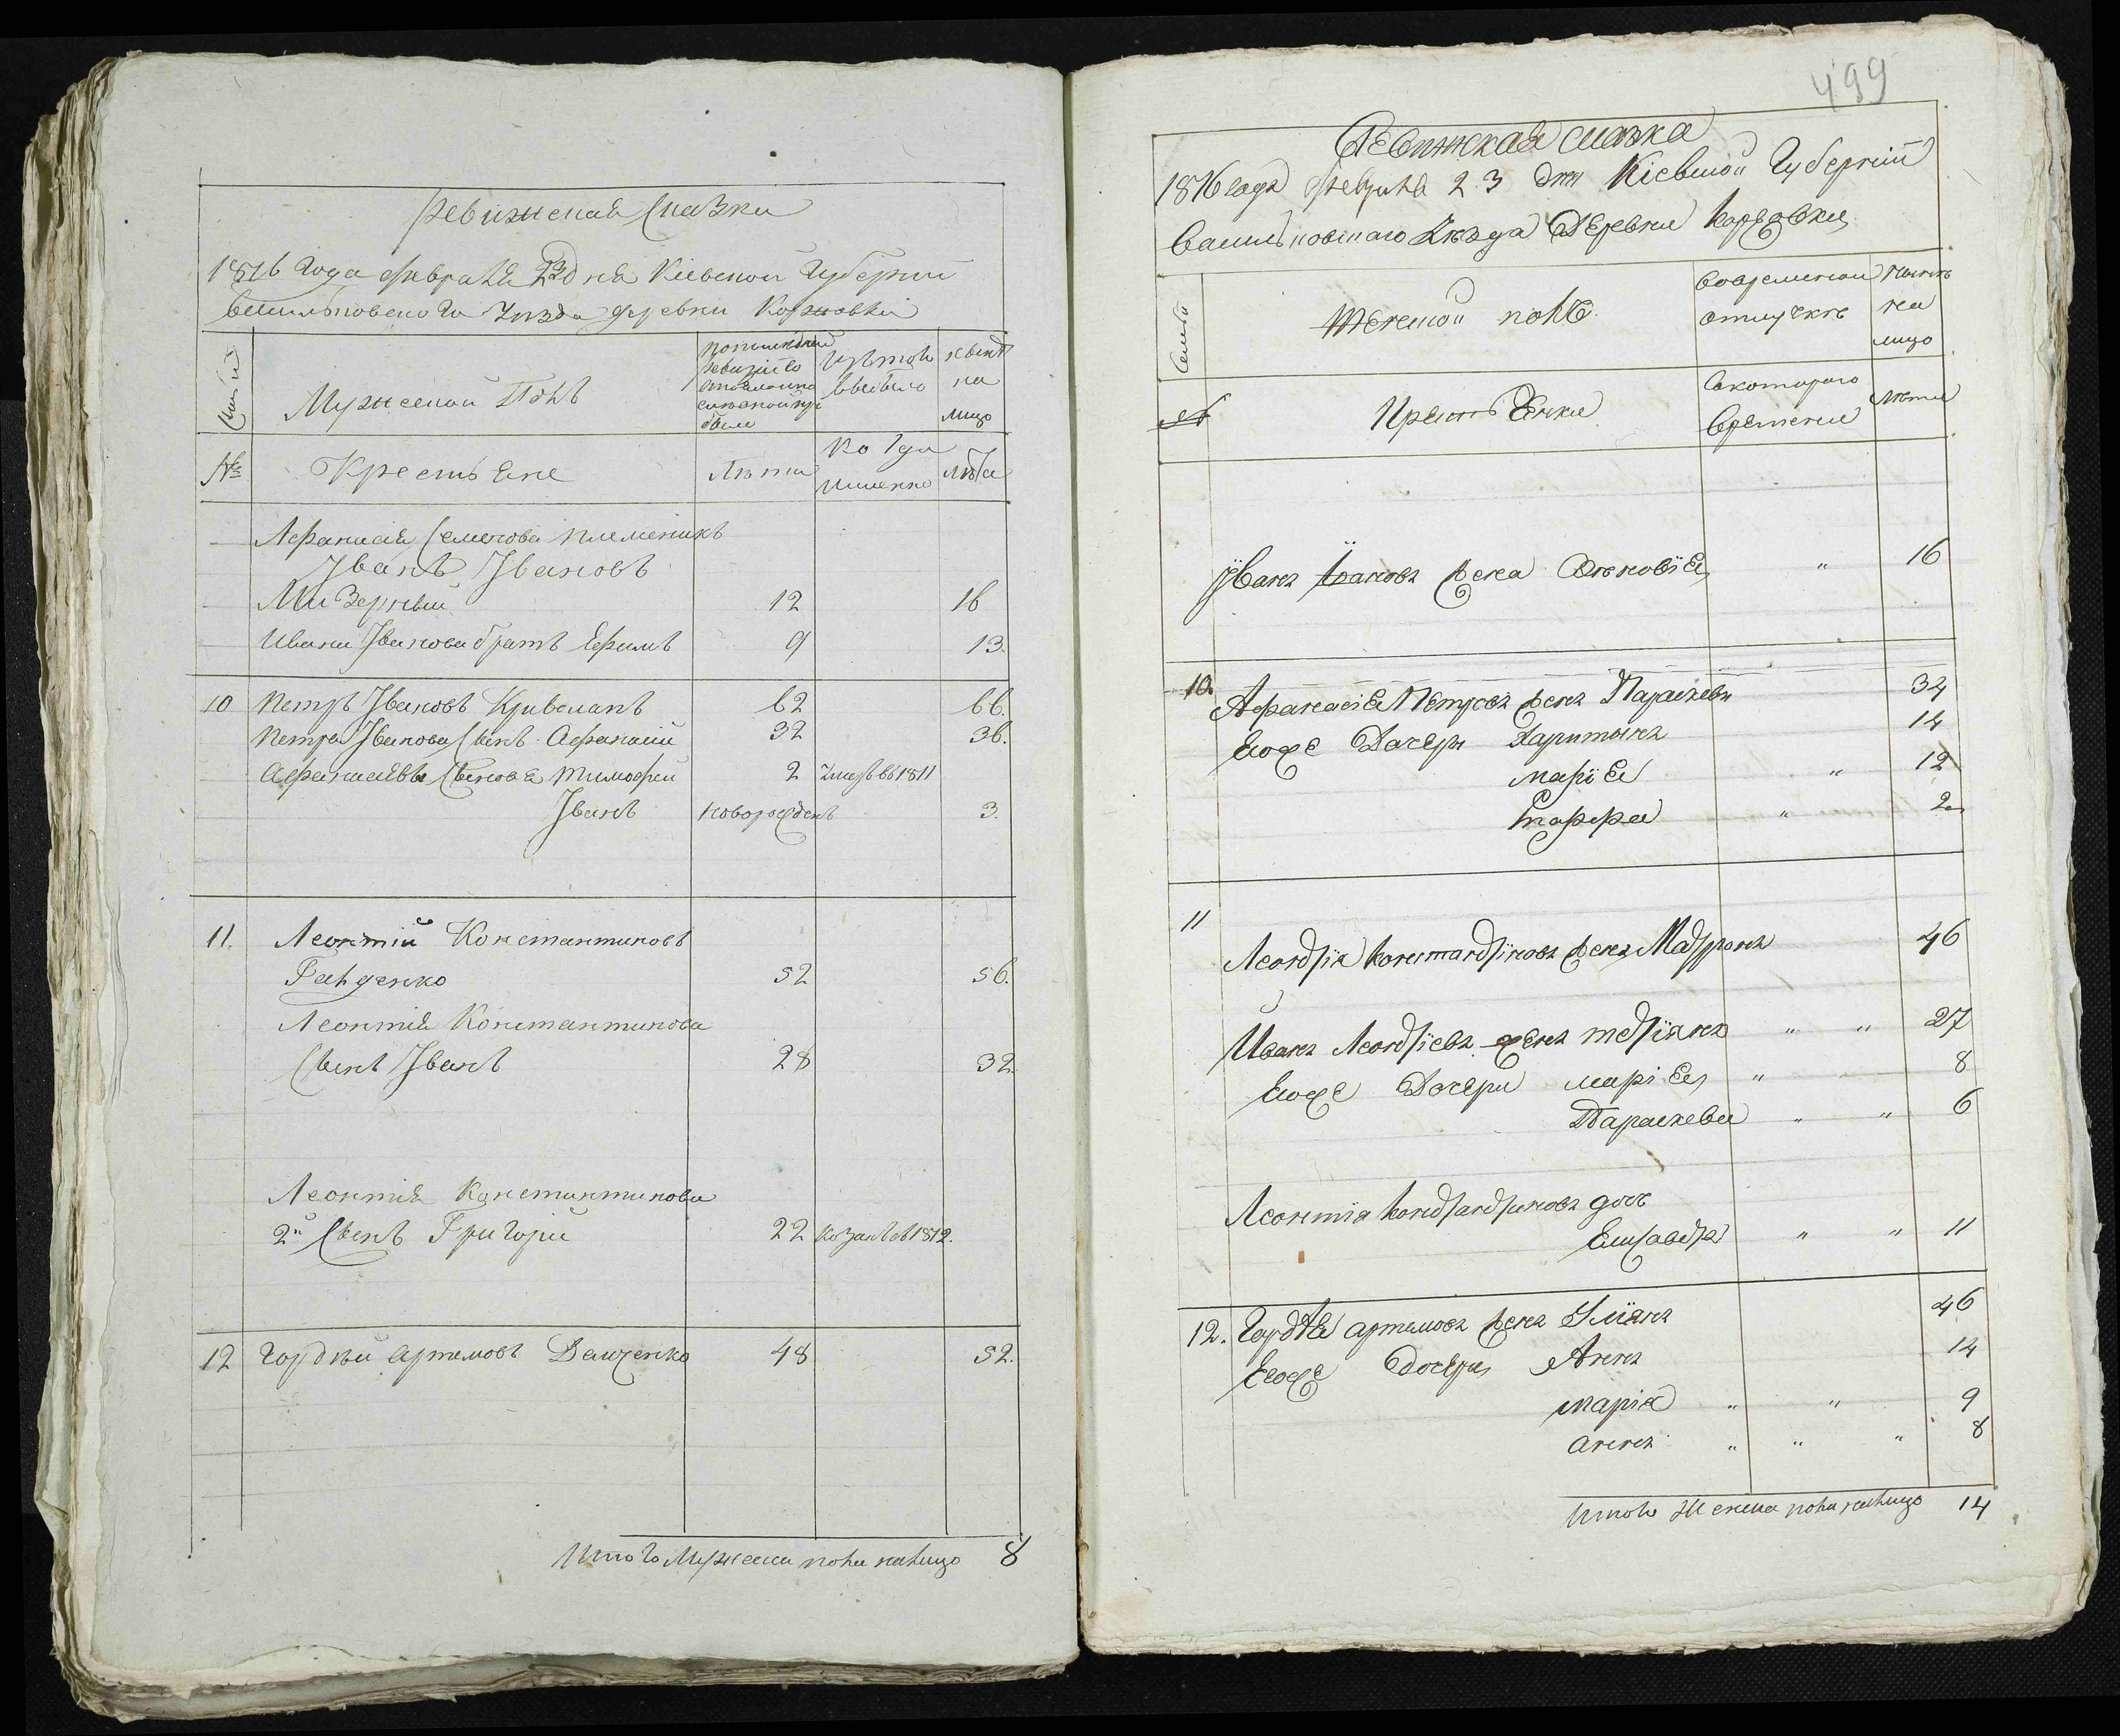 Ревижская Сказка
1816 Года февраля 23 дня Кіевской Губерніи
Василковского Уезда деревни Коржовки
Семьи
Мужеской Полъ
По последней ревизіи состояло и по
были
Изъ того выбыло
Ныне на лицо
№
Крестьяне
Лета
Когда именно
Лета
Афанасія Семенова племеникъ
Іванъ Івановъ
Мизерный 12 16
Ивана Іванова братъ Ефимъ 9 13.
10 Петръ Івановъ Кривошапъ 62 66.
Петра Іванова Сынъ Афанасій 32 36.
Афанасіевы Сыновья Тимофей 2 Умеръ въ 1811
Іванъ новорожденъ 3.
11. Леонтій Константиновъ
Гайденко 52 56.
Леонтія Константинова
Сынъ Іванъ 28 32.
Леонтія Константинова
2й Сынъ Григорій 22 Козакъ въ 1812.
12 Гордѣй Артемовъ Демченко 48 52.
Итого Мужеска пола налицо 8
499
Ревижская сказка
1816 года февраля 23 дня Кіевской Губерніи
Василковскаго Уезда Деревни Коржовки
Семьи
Женской полъ
Во временной отлучкѣ
Нынѣ на лицо
№
Крестьянки
Скотораго Времени
Лета
Іванъ Івановъ жена Зѣновія " 16
10. Афанасія Петровъ жена Параскева 34
Егоже Дочери Харитына 14
Марія " 12
Еофра " 2
11
Леонтія Константіновъ жена Матрона 46
Иванъ Леонтіевъ жена Тетіяна " " 27
Егоже Дочери Марія " 8
Параскева " " 6
Леонтія Константиновъ дочь
Елисавета " " 11
12. Гордѣя Артемовъ жена Уліяна 46
Егоже Дочери Анна 14
Марія " " 9
Анна " " " 8
Итого Женска пола налицо 14